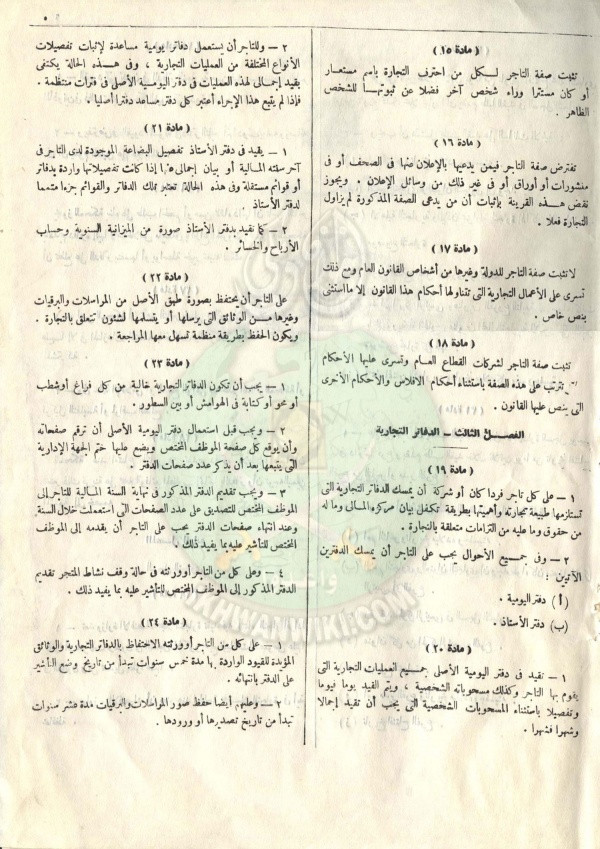 ٥
( مادة ١٥ )
تثبت صفة التاجر لكل من احترف التجارة باسم مستعار
أو كان مستترا وراء شخص آخر فضلا عن ثبوتها للشخص
الظاهر .
( مادة ١٦ )
تفترض صفة التاجر فيمن يدعيها بالإعلان عنها فى الصحف أو فى
منشورات أو أوراق أو فى غير ذلك من وسائل الإعلان ، ويجوز
نقض هذه القرينة بإثبات أن من يدعى الصفة المذكورة لم يزاول
التجارة فعلا .
( مادة ١٧ )
لا تثبت صفة التاجر للدولة وغيرها من أشخاص القانون العام ومع ذلك
تسرى على الأعمال التجارية التى تتناولها أحكام هذا القانون إلا ما استثنى
بنص خاص .
( مادة ١٨ )
تثبت صفة التاجر لشركات القطاع العام وتسرى عليها الأحكام
التى تترتب على هذه الصفة باستثناء أحكام الافلاس والأحكام الأخرى
التى ينص عليها القانون .
الفصل الثالث – الدفاتر التجارية
( مادة ١٩ )
١ – على كل تاجر فردا كان أو شركة أن يمسك الدفاتر التجارية التى
تستلزمها طبيعة تجارته وأهميتها بطريقة تكفل بيان مركزه المالى وما له
من حقوق وما عليه من التزامات متعلقة بالتجارة .
٢ – وفى جميع الأحوال يجب على التاجر أن يمسك الدفترين
الآتيين :
( أ ) دفتر اليومية .
(ب) دفتر الأستاذ .
( مادة ٢٠ )
١ – تقيد فى دفتر اليومية الأصلى جميع العمليات التجارية التى
يقوم بها التاجر وكذلك مسحوباته الشخصية ، ويتم القيد يوما فيوما
وتفصيلا باستثناء المسحوبات الشخصية التى يجب أن تقيد إجمالا
وشهرا فشهرا .
٢ – وللتاجر أن يستعمل دفاتر يومية مساعدة لإثبات تفصيلات
الأنواع المختلفة من العمليات التجارية ، وفى هذه الحالة يكتفى
بقيد إجمالى لهذه العمليات فى دفتر اليومية الأصلى فى فترات منتظمة .
فإذا لم يتبع هذا الإجراء أعتبر كل دفتر مساعد دفترا أصليا .
( مادة ٢١ )
١ – يقيد فى دفتر الأستاذ تفصيل البضاعة الموجودة لدى التاجر فى
آخر سنته المالية أو بيان إجمالى عنها إذا كانت تفصيلاتها واردة بدفاتر
أو قوائم مستقلة وفى هذه الحالة تعتبر تلك الدفاتر والقوائم جزءا متمما
لدفتر الأستاذ .
٢ – كما تقيد بدفتر الأستاذ صورة من الميزانية السنوية وحساب
الأرباح والخسائر .
( مادة ٢٢ )
على التاجر أن يحتفظ بصورة طبق الأصل من المراسلات والبرقيات
وغيرها من الوثائق التى يرسلها أو يتسلمها لشئون تتعلق بالتجارة .
ويكون الحفظ بطريقة منظمة تسهل معها المراجعة .
( مادة ٢٣ )
١ – يجب أن تكون الدفاتر التجارية خالية من كل فراغ أو شطب
أو محو أو كتابة فى الهوامش أو بين السطور .
٢ – ويجب قبل استعمال دفتر اليومية الأصلى أن ترقم صفحاته
وأن يوقع كل صفحة الموظف المختص ويضع عليها ختم الجهة الإدارية
التى يتبعها بعد أن يذكر عدد صفحات الدفتر .
٣ – ويجب تقديم الدفتر المذكور فى نهاية السنة المالية للتاجر إلى
الموظف المختص للتصديق على عدد الصفحات التى استعملت خلال السنة
وعند انتهاء صفحات الدفتر يجب على التاجر أن يقدمه إلى الموظف
المختص للتأشير عليه بما يفيد ذلك .
٤ – وعلى كل من التاجر أو ورثته فى حالة وقف نشاط المتجر تقديم
الدفتر المذكور إلى الموظف المختص للتأشير عليه بما يفيد ذلك .
( مادة ٢٤ )
١ – على كل من التاجر أو ورثته الاحتفاظ بالدفاتر التجارية والوثائق
المؤيدة للقيود الواردة بها مدة خمس سنوات تبدأ من تاريخ وضع التأشير
على الدفتر بانتهائه .
٢ – وعليهم أيضا حفظ صور المراسلات والبرقيات مدة عشر سنوات
تبدأ من تاريخ تصديرها أو ورودها .